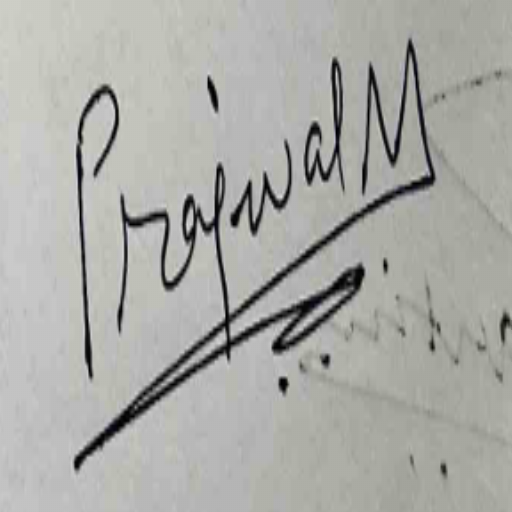 Prajwal M